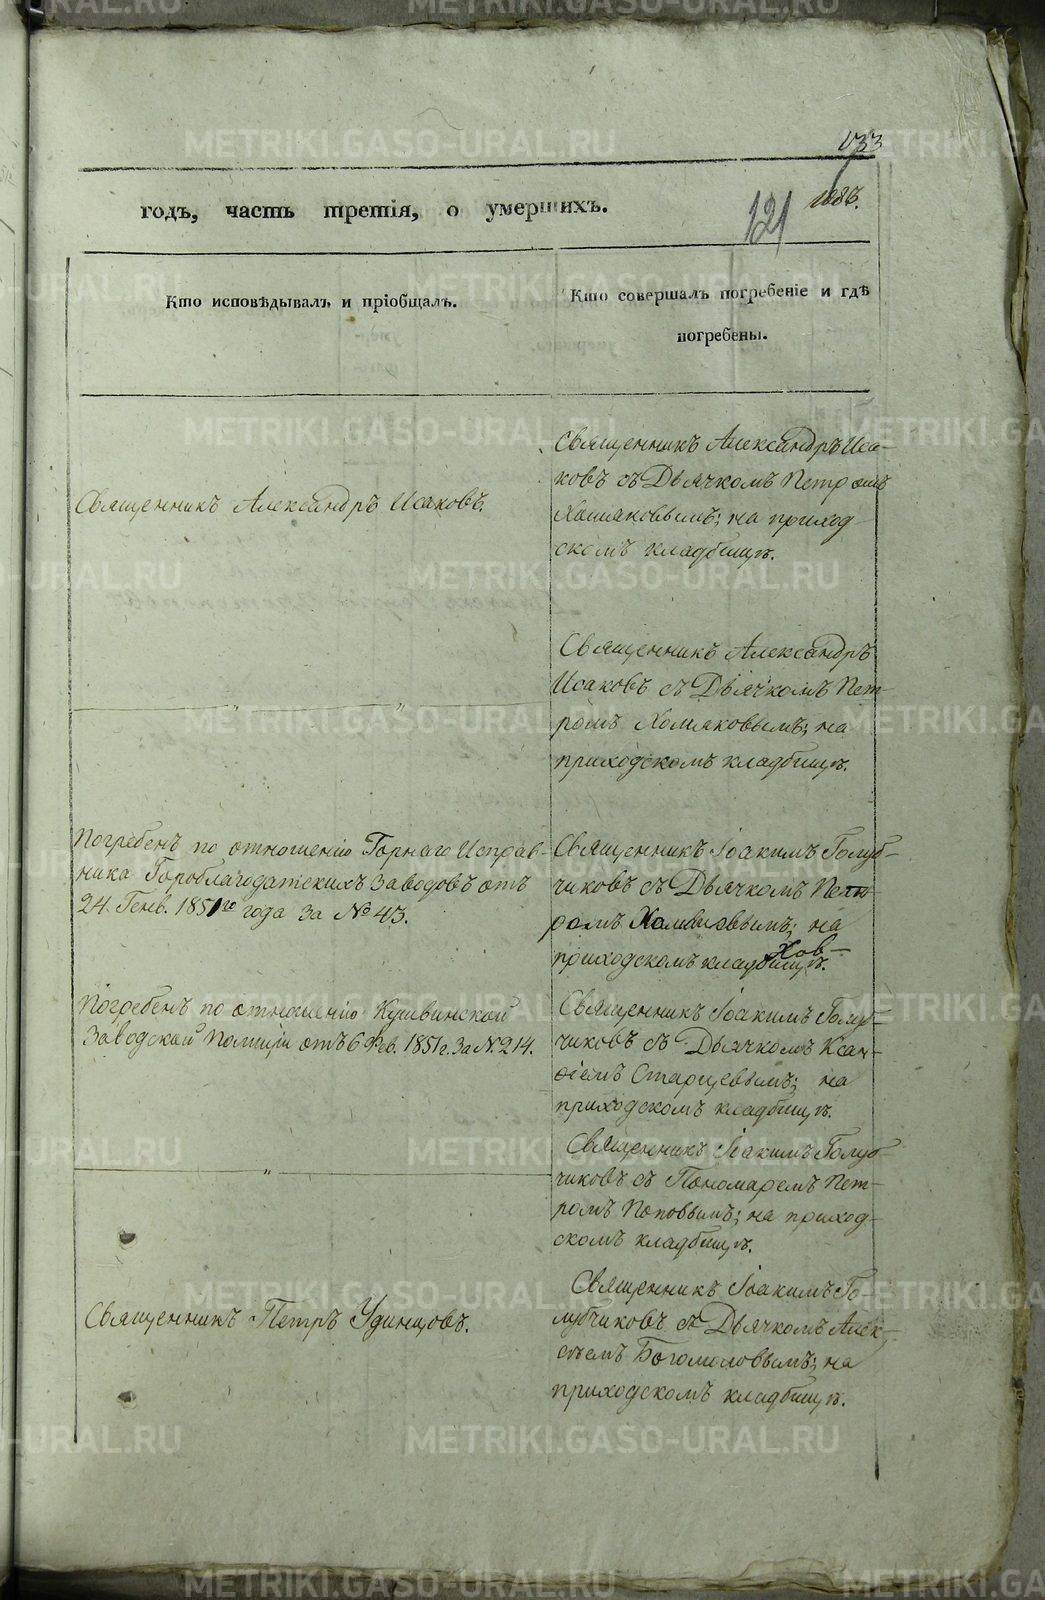 133
годъ, часть третія, о умершихъ.
121
Кто исповѣдывалъ и пріобщалъ.
Кто совершалъ погребеніе и гдѣ
погребены.
Священникъ Александръ Исаковъ.
Священникъ Александръ Иса-
ковъ съ Дьячкомъ Петромъ
Хомяковымъ; на приход-
скомъ кладбищѣ.
" "
Священникъ Александръ
Исаковъ съ Дьячкомъ Пет-
ромъ Хомяковымъ; на
приходскомъ кладбищѣ.
Погребенъ по отношенію Горнаго Исправ-
ника Гороблагодатскихъ Заводовъ отъ
24. Генв. 1851го года за № 43.
Священникъ Іоакимъ Голуб-
чиковъ съ Дьячкомъ Пет-
ромъ на
приходскомъ кладбищѣ.
Погребенъ по отношенію Кушвинской
Заводской Полиціи отъ 6 Фев. 1851 г. за № 214.
Священникъ Іоакимъ Голуб-
чиковъ съ Дьячкомъ Ксан-
фіемъ Старцевымъ; на
приходскомъ кладбищѣ.
"
Священникъ Іоакимъ Голуб-
чиковъ съ Пономаремъ Пет-
ромъ Поповымъ; на приход-
скомъ кладбищѣ.
Священникъ Петръ Удинцовъ.
Священникъ Іоакимъ Го-
лубчиковъ съ Дьячкомъ Алек-
сѣемъ Богомоловымъ; на
приходскомъ кладбищѣ.
METRIKI.GASO-URAL.RU